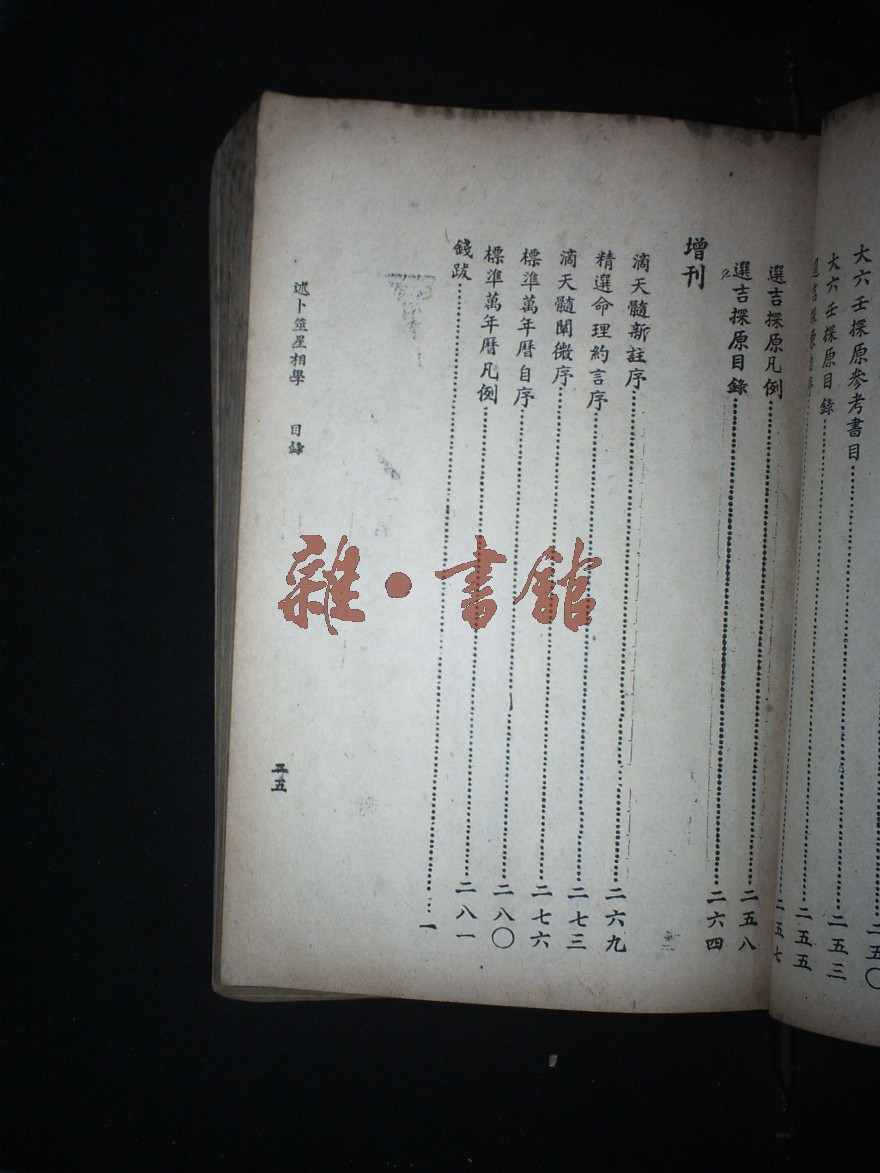 二五〇
大六壬探原參考書目……二五三
大六壬探原目錄……二五五
選吉探原自序……二五七
選吉探原凡例……二五八
選吉探原目錄……二六四
增刊
滴天髓新註序……二六九
精選命理約言序……二七三
滴天髓闡微序……二七六
標準萬年曆自序……二八〇
標準萬年曆凡例……二八一
錢跋……一
述卜筮星相學 目錄
雜·書館